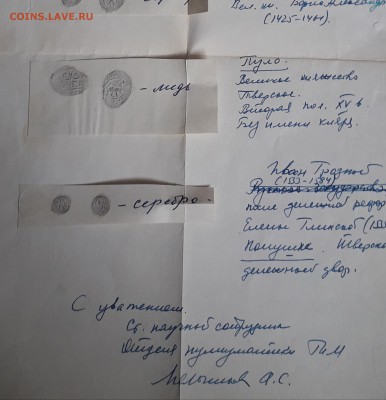 COINS.LAVE.RU
Вел. кн. Борис Александр
(1425-1461).
Пуло.
- медь
Великое княжество
Тверское.
Вторая пол. XV в.
Без имени князя.
Иван Грозный
(1533-1584)
после денежной рефор
- серебро.
Елены Глинской (
Полушка. Тверской
денежный двор.
С уважением
Ст. научный сотрудник
Отдела нумизматики ГИМ
А.С.